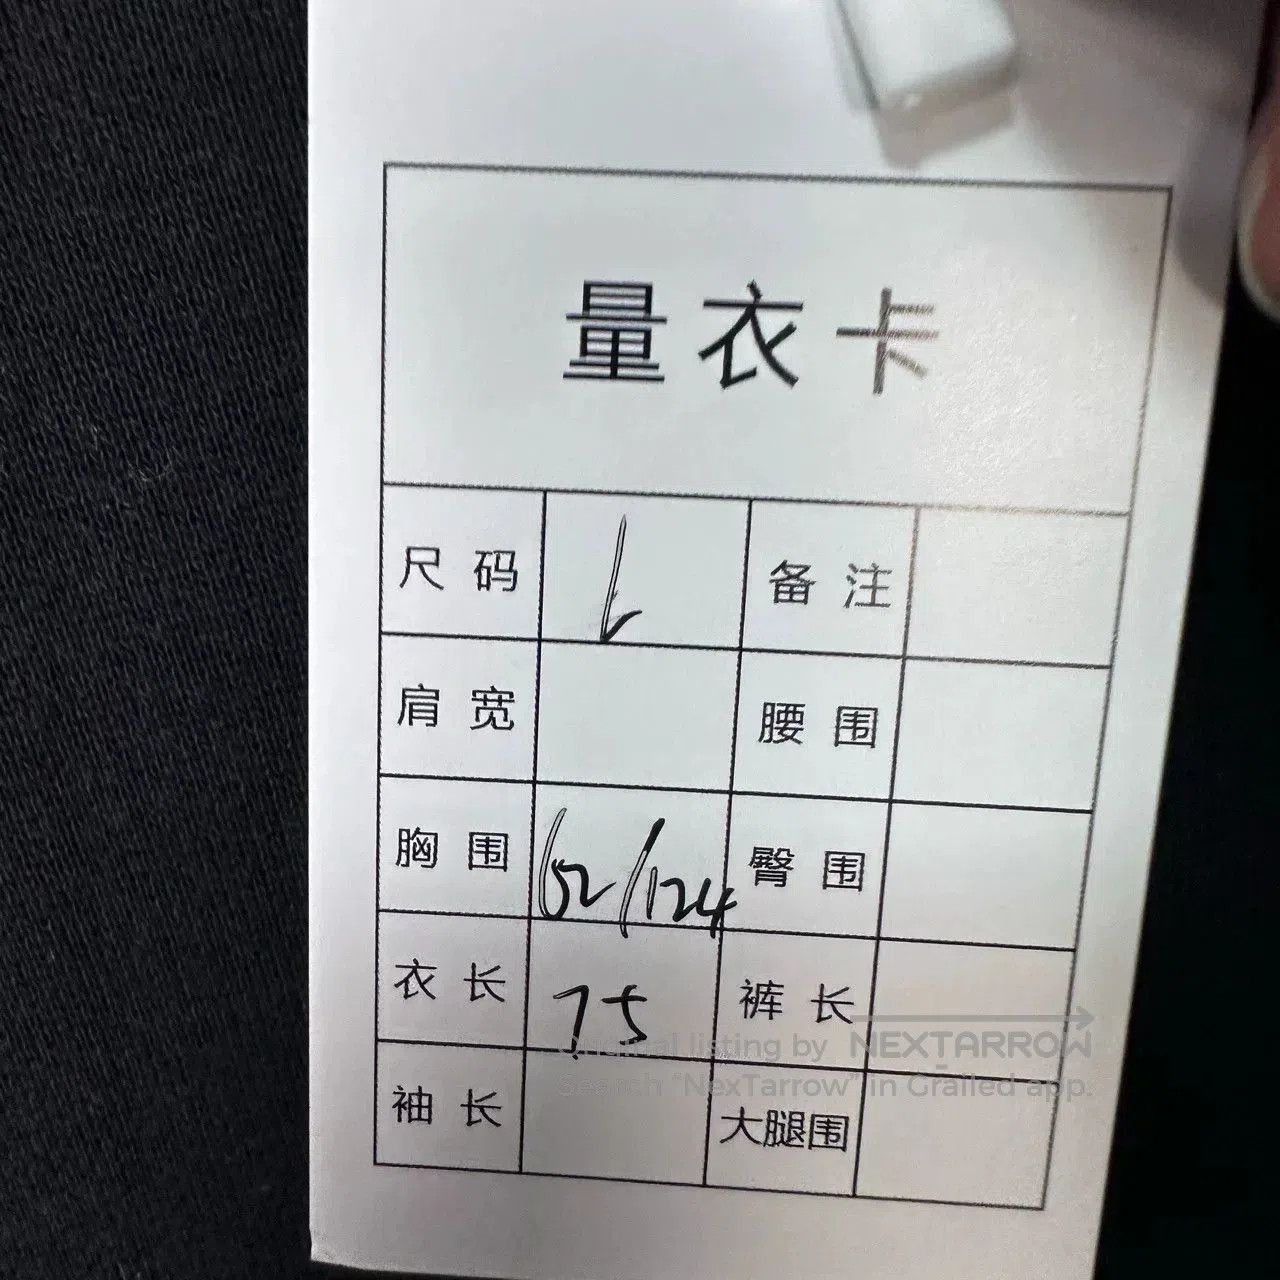 量衣卡
尺码 L 备注
肩宽 腰围
胸围 62/124 臀围
衣长 75 裤长
袖长 大腿围
Original listing by NEXTARROW
Search "NexTarrow" in Grailed app.